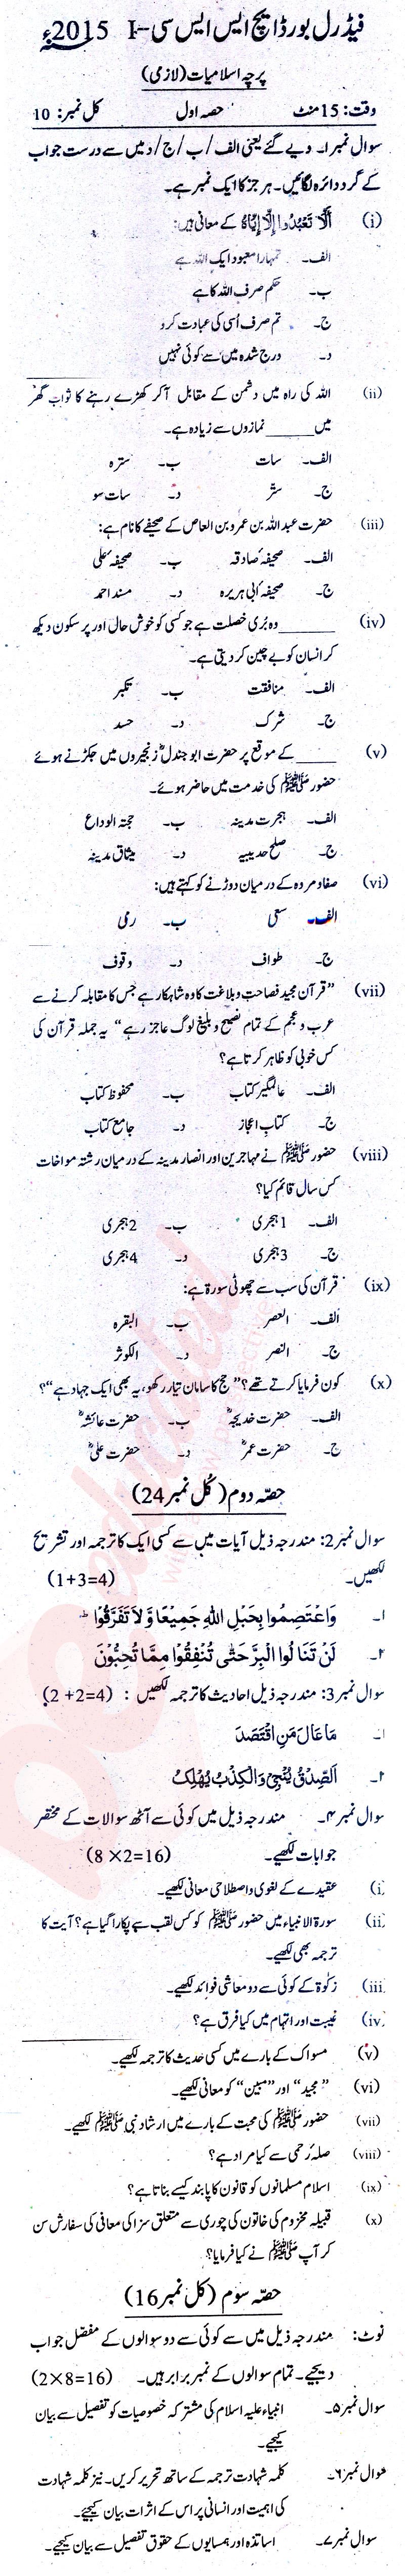 فیڈرل بورڈ ایچ ایس ایس سی-I 2015ء
پرچہ اسلامیات (لازمی)
وقت: 15 منٹ حصہ اول کل نمبر: 10
سوال نمبر ۱۔ دیے گئے یعنی الف/ب/ج/د میں سے درست جواب
کے گرد دائرہ لگائیں۔ ہر جز کا ایک نمبر ہے۔
(i) أَلَّا تَعْبُدُوا إِلَّا إِيَّاهُ کے معانی ہیں:
الف۔ تمہارا معبود ایک اللہ ہے
ب۔ حکم صرف اللہ کا ہے
ج۔ تم صرف اُسی کی عبادت کرو
د۔ درج شدہ میں سے کوئی نہیں
(ii) اللہ کی راہ میں دشمن کے مقابل آ کر کھڑے رہنے کا ثواب گھر
میں ______ نمازوں سے زیادہ ہے۔
الف۔ سات ب۔ سترہ
ج۔ ستّر د۔ سات سو
(iii) حضرت عبداللہ بن عمرو بن العاص کے صحیفے کا نام ہے:
الف۔ صحیفہ صادقہ ب۔ صحیفہ علی
ج۔ صحیفہ ابی ہریرہ د۔ مسند احمد
(iv) ______ وہ بُری خصلت ہے جو کسی کو خوش حال اور پر سکون دیکھ
کر انسان کو بے چین کر دیتی ہے۔
الف۔ منافقت ب۔ تکبر
ج۔ شرک د۔ حسد
(v) ____ کے موقع پر حضرت ابو جندلؓ زنجیروں میں جکڑنے ہوئے
حضور ﷺ کی خدمت میں حاضر ہوئے۔
الف۔ ہجرت مدینہ ب۔ حجۃ الوداع
ج۔ صلح حدیبیہ د۔ میثاق مدینہ
(vi) صفا و مروہ کے درمیان دوڑنے کو کہتے ہیں:
الف۔ سعی ب۔ رمی
ج۔ طواف د۔ وقوف
(vii) ”قرآن مجید فصاحت و بلاغت کا وہ شاہکار ہے جس کا مقابلہ کرنے سے
عرب و عجم کے تمام فصیح و بلیغ لوگ عاجز رہے“ یہ جملہ قرآن کی
کس خوبی کو ظاہر کرتا ہے؟
الف۔ عالمگیر کتاب ب۔ محفوظ کتاب
ج۔ کتاب اعجاز د۔ جامع کتاب
(viii) حضور ﷺ نے مہاجرین اور انصار مدینہ کے درمیان رشتہ مواخات
کس سال قائم کیا؟
الف۔ 1 ہجری ب۔ 2 ہجری
ج۔ 3 ہجری د۔ 4 ہجری
(ix) قرآن کی سب سے چھوٹی سورۃ ہے:
الف۔ العصر ب۔ البقرہ
ج۔ النصر د۔ الکوثر
(x) کون فرمایا کرتے تھے؟ ”حج کا سامان تیار رکھو، یہ بھی ایک جہاد ہے“؟
الف۔ حضرت خدیجہؓ ب۔ حضرت عائشہؓ
ج۔ حضرت عمرؓ د۔ حضرت علیؓ
حصہ دوم (کُل نمبر 24)
سوال نمبر 2: مندرجہ ذیل آیات میں سے کسی ایک کا ترجمہ اور تشریح
لکھیں۔ (1+3=4)
۱۔ وَاعْتَصِمُوا بِحَبْلِ اللهِ جَمِيْعًا وَّلَا تَفَرَّقُوْا ط
۲۔ لَنْ تَنَالُوا الْبِرَّ حَتّٰى تُنْفِقُوْا مِمَّا تُحِبُّوْنَ
سوال نمبر 3: مندرجہ ذیل احادیث کا ترجمہ لکھیں : (2+2=4)
۱۔ مَا عَالَ مَنِ اقْتَصَدَ
۲۔ اَلصِّدْقُ يُنْجِيْ وَالْكِذْبُ يُهْلِكُ
سوال نمبر ۴۔ مندرجہ ذیل میں کوئی سے آٹھ سوالات کے مختصر
جوابات لکھیے۔ (8×2=16)
(i) عقیدے کے لغوی و اصطلاحی معانی لکھیے۔
(ii) سورۃ الانبیاء میں حضور ﷺ کو کس لقب سے پکارا گیا ہے؟ آیت کا
ترجمہ بھی لکھیے۔
(iii) زکوٰۃ کے کوئی سے دو معاشی فوائد لکھیے۔
(iv) غیبت اور اتہام میں کیا فرق ہے؟
(v) مسواک کے بارے میں کسی حدیث کا ترجمہ لکھیے۔
(vi) ”مجید“ اور ”مبین“ کو معانی لکھیے۔
(vii) حضور ﷺ کی محبت کے بارے میں ارشاد نبی ﷺ لکھیے۔
(viii) صلہ رحمی سے کیا مراد ہے؟
(ix) اسلام مسلمانوں کو قانون کا پابند کیسے بناتا ہے؟
(x) قبیلہ مخزوم کی خاتون کی چوری سے متعلق سزا کی معافی کی سفارش سن
کر آپ ﷺ نے کیا فرمایا؟
حصہ سوم (کل نمبر 16)
نوٹ: مندرجہ ذیل میں سے کوئی سے دو سوالوں کے مفصل جواب
دیجیے۔ تمام سوالوں کے نمبر برابر ہیں۔ (2×8=16)
سوال نمبر ۵۔ انبیاء علیہ اسلام کی مشترکہ خصوصیات کو تفصیل سے بیان
کیجیے۔
سوال نمبر ۶۔ کلمہ شہادت ترجمہ کے ساتھ تحریر کریں۔ نیز کلمہ شہادت
کی اہمیت اور انسانی پر اس کے اثرات بیان کیجیے۔
سوال نمبر ۷۔ اساتذہ اور ہمسایوں کے حقوق تفصیل سے بیان کیجیے۔